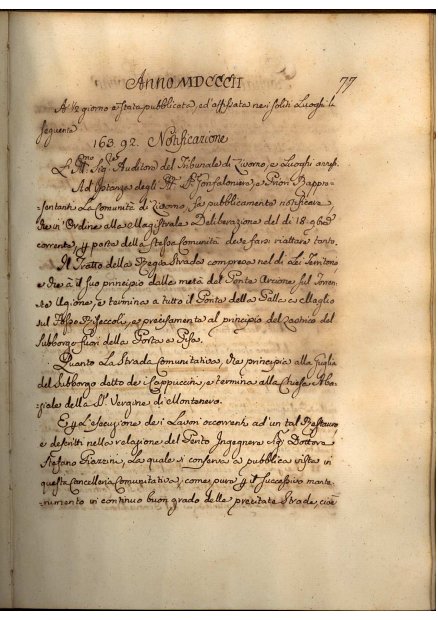 Anno MDCCCII 77
A 1/2 giorno è stata pubblicata, ed affissata nei soliti Luoghi la
seguente
163. 92. Notificazione
L'Ill.mo Sig.re Auditore del Tribunale di Livorno, e Luoghi annessi.
Ad Istanza degli Ill. SS. Gonfaloniere, e Priori Rappre-
sentanti La Comunità di Livorno, fa pubblicamente notificare,
che in Ordine alla Magistrale Deliberazione del dì 18 9bre
corrente, p parte della stessa Comunità deve farsi riattare tanto.
Il Tratto della Regia Strada compreso nel di Lei Territorio
e che à il suo principio dalla metà del Ponte Arcione sul Torren-
te Ugione, e termina a tutto il Ponte della Palla a Maglio
sul Fosso Riseccoli, e precisamente al principio del Lastrico del
Subborgo fuori della Porta a Pisa.
Quanto La Strada Comunitativa, che principia alla Guglia
del Subborgo detto dei Cappuccini, e termina alla Chiesa Aba-
ziale della SS. Vergine di Montenero.
E p L'esecuzione dei Lavori occorrenti ad un tal Restauro
e descritti nella relazione del Perito Ingegnere Sig. Dottore
Stefano Piazzini, La quale si conserva a pubblica vista in
questa Cancelleria Comunitativa, come pure p il successivo mante-
nimento in continuo buon grado delle precitate Strade, cioè